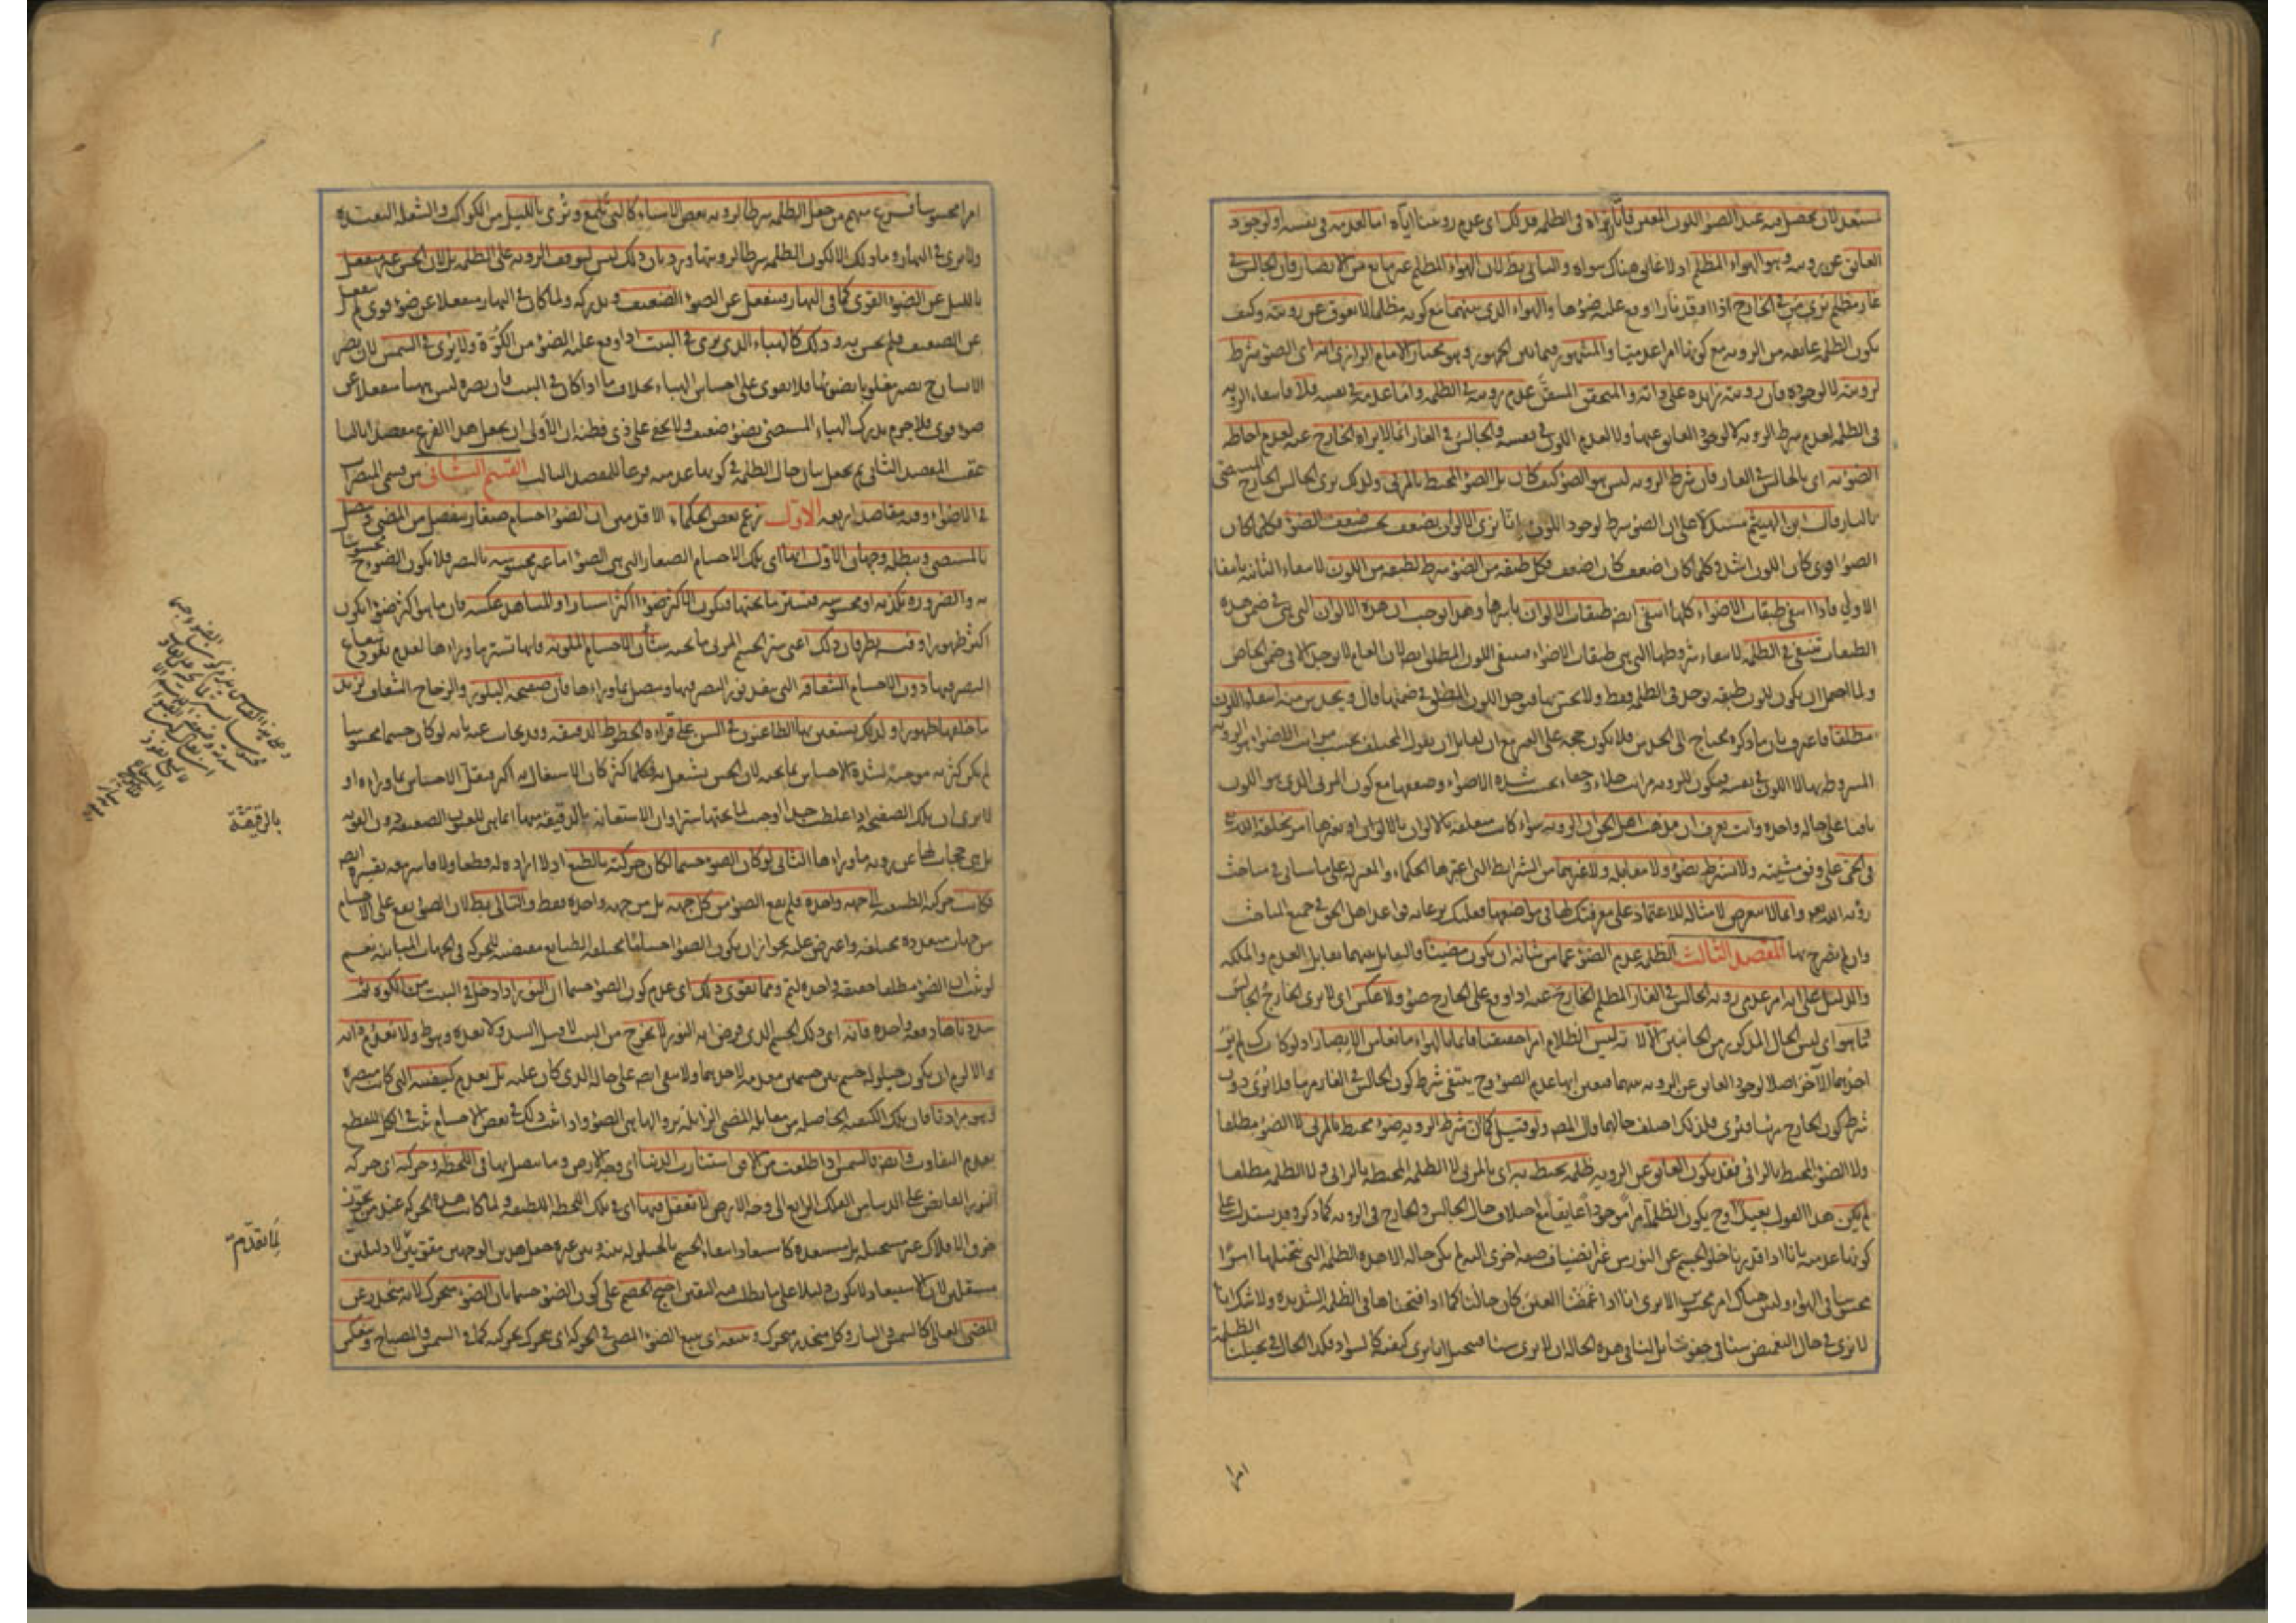 مستعد لان يحصل فيه عند الضوء اللون المعين فانا لا نراه في الظلمة فذلك اي عدم رؤيتنا اياه اما لعدمه في نفسه او لوجود
العائق عن رؤيته وهو الهواء المظلم اذ لا عائق هناك سواه والثاني بط لان الهواء المظلم غير مانع من الابصار فان الجالس في
غار مظلم يرى من في الخارج اذا اوقد نارا او وقع عليه ضوءها والهواء الذي بينهما مع كونه مظلما لا يعوق عن رؤيته وكيف
يكون الظلمة عائقة من الرؤية مع كونها امرا عدميا والمشهور فيما بين الجمهور وهو مختار الامام الرازي انه اى الضوء شرط
لرؤيته لا لوجوده فان رؤيته زايدة على ذاته والمتحقق المتيقن عدم رؤيته في الظلمة واما عدمه في نفسه فلا فانتفاء الرؤية
في الظلمة لعدم شرط الرؤية لا لوجود العائق عنها ولا لعدم اللون في نفسه والجالس في الغار انما لا يراه الخارج عنه لعدم احاطة
الضوء به اى بالجالس في الغار فان شرط الرؤية ليس هو الضوء كيف كان بل الضوء المحيط بالمرئي ولذلك يرى الجالس الخارج المستضئ
بالنار قال ابن الهيثم مستدلا على ان الضوء شرط لوجود اللون انا نرى الالوان يضعف بحسب ضعف الضوء فكلما كان
الضوء اقوى كان اللون اشد وكلما كان اضعف كان اضعف فكل طبقة من الضوء شرط لطبقة من اللون لانتفاء الثانية بانتفاء
الاولى فاذا انتفى طبقات الاضواء كلها انتفى ايضا طبقات الالوان باسرها وهذا يوجب ان هذه الالوان التي هي في ضمن هذه
الطبقات تنتفي في الظلمة لانتفاء شروطها التي هي طبقات الاضواء فينتفي اللون المطلق ايضا لان العام لا يوجد الا في ضمن الخاص
ولما احتمل ان يكون للون طبقة توجد في الظلمة فقط ولا يحس بها فيوجد اللون المطلق في ضمنها قال ويحدس منه انتفاء اللون
مطلقا فاعترف بان ما ذكره محتاج الى الحدس فلا يكون حجة على الغير مع ان لقائل ان يقول المختلف بحسب مراتب الاضواء هو الرؤية
المشروطة بها لا اللون في نفسه فيكون للرؤية مراتب جلاء وخفاء بحسب شدة الاضواء وضعفها مع كون المرئي الذي هو اللون
باقيا على حالة واحدة وانت تعرف ان مذهب اهل الحق ان الرؤية سواء كانت متعلقة بالالوان او بغيرها امر يخلقه الله
في الحي على وفق مشيته ولا يشترط بضوء ولا مقابلة ولا غيرهما من الشرايط التي اعتبرها الحكماء والمعتزلة على ما سيأتي في مباحث
رؤية الله تعالى وانما لا نتعرض لامثاله للاعتماد على معرفتك بها في مواضعها فعليك برعاية قواعد اهل الحق في جميع المباحث
وان لم نصرح بها المقصد الثالث الظلمة عدم الضوء عما من شانه ان يكون مضيئا فالتقابل بينهما تقابل العدم والملكة
والدليل على انه امر عدمي رؤية الجالس في الغار المظلم الخارج عنه اذا وقع على الخارج ضوء ولا عكس اى لا يرى الخارج الجالس
فما هو اى ليس الحال المذكور من الجانبين الا لانه ليس الظلام امرا حقيقيا قائما بالهواء مانعا من الابصار اذ لو كان كذلك لم ير
احدهما الآخر اصلا لوجود العائق عن الرؤية بينهما فتعين انها عدم الضوء وح ينتفي شرط كون الجالس في الغار مرئيا فلا يرى دون
شرط كون الخارج مرئيا فيرى فلذلك اختلف حالهما قال المص ولو قيل كما ان شرط الرؤية ضوء محيط بالمرئي لا الضوء مطلقا
ولا الضوء المحيط بالرائي فقد يكون العائق عن الرؤية ظلمة تحيط به اى بالمرئي لا الظلمة المحيطة بالرائي ولا الظلمة مطلقا
لم يكن هذا القول بعيدا وح يكون الظلمة امرا موجودا عايقا مع اختلاف حال الجالس والخارج في الرؤية كما ذكر وقد يستدل على
كونها عدمية بانا اذا قدرنا خلو الجسم عن النور من غير انضياف صفة اخرى اليه لم يكن حاله الا هذه الظلمة التي نتخيلها امرا
محسوسا في الهواء وليس هناك امر محسوس الا ترى انا اذا غمضنا العين كان حالنا كما اذا فتحناها في الظلمة الشديدة ولا شك انا
لا نرى في حال التغميض شيئا في جفوننا بل لنا في هذه الحالة ان لا نرى شيئا فنتخيل انا نرى كيفية كالسواد فكذا الحال في تخيلنا الظلمة
امرا
امرا محسوسا فرع منهم من جعل الظلمة شرطا لرؤية بعض الاشياء كالتي تلمع وترى بالليل من الكواكب والشعل البعيدة
ولا ترى في النهار وما ذلك الا لكون الظلمة شرطا لرؤيتها ورد بان ذلك ليس لتوقف الرؤية على الظلمة بل لان الحس غير منفعل
بالليل عن الضوء القوي كما في النهار فينفعل عن الضوء الضعيف ويدركه ولما كان في النهار منفعلا عن ضوء قوي لم ينفعل
عن الضعيف فلم يحس به وذلك كالهباء الذي يرى في البيت اذا وقع عليه الضوء من الكوة ولا يرى في الشمس لان بصر
الانسان ح يصير مغلوبا بضوئها فلا يقوى على احساس الهباء بخلاف ما اذا كان في البيت فان بصره ليس ههنا منفعلا عن
ضوء قوي فلا جرم يدرك الهباء المستضئ بضوء ضعيف ولا يخفى على ذي فطنة ان الاولى ان يجعل هذا الفرع مقصدا ثالثا
عقيب المقصد الثاني ثم يجعل بيان حال الظلمة في كونها عدمية فرعا للمقصد الثالث القسم الثاني من قسمي المبصرات
في الاضواء وفيه مقاصد اربعة الاول زعم بعض الحكماء الاقدمين ان الضوء اجسام صغار ينفصل من المضئ ويتصل
بالمستضئ ويبطله وجهان الاول انها اى تلك الاجسام الصغار التي هي الضوء اما غير محسوسة بالبصر فلا يكون الضوء ح محسوسا
به والضرورة تكذبه او محسوسة فتستر ما تحتها فيكون الاكثر ضوءا اكثر استتارا والمشاهد عكسه فان ما هو اكثر ضوءا يكون
اكثر ظهورا وفيه نظر فان ذلك اعني ستر الجسم المرئي ما تحته شأن الاجسام الملونة فانها تستر ما وراءها لعدم نفوذ شعاع
البصر فيها دون الاجسام الشفافة التي ينفذ نور البصر فيها ويتصل بما وراءها فان صفيحة البلور والزجاج الشفاف تزيد
ما خلفها ظهورا ولذلك يستعين بها الطاعنون في السن على قراءة الخطوط الدقيقة وقد يجاب عنه بانه لو كان جسما محسوسا
لم يكن كثرته موجبة لشدة الاحساس بما تحته لان الحس يشتغل به فكلما كثر كان الاشتغال به اكثر فيقل الاحساس بما وراءه او
لا يرى ان تلك الصفيحة اذا غلظت جدا اوجبت لما تحتها سترا وان الاستعانة بالرقيقة منها انما هي للعيون الضعيفة دون القوية
بل هي حجاب لها عن رؤية ما وراءها الثاني لو كان الضوء جسما لكان حركته بالطبع اذ لا ارادة له قطعا ولا قاسر معه يقسره ايضا
فكانت حركة الطبيعية الى جهة واحدة فلم يقع الضوء من كل جهة بل من جهة واحدة فقط والتالي بط لان الضوء يقع على الاجسام
من جهات متعددة مختلفة واعترض عليه بجواز ان يكون الضوء اجساما مختلفة الطبايع مقتضية للحركة في الجهات المتباينة نعم
لو ثبت ان الضوء مطلقا حقيقة واحدة لتم ومما يقوي ذلك اى عدم كون الضوء جسما ان النور اذا دخل في البيت من الكوة ثم
سددناها دفعة واحدة فانه اى ذلك الجسم الذي فرض انه النور لا يخرج من البيت لا قبل السد ولا بعده وهو ظ ولا تعدم ذاته
والا لزم ان يكون حيلولة جسم بين جسمين معدمة لاحدهما ولا يبقى ايضا على حاله الذي كان عليه بل يعدم كيفيته التي كانت مبصرة
وهو مرادنا فان تلك الكيفية الحاصلة من مقابلة المضئ الزايلة بزوالها هي الضوء واذا ثبت ذلك في بعض الاجسام ثبت في الكل للقطع
بعدم التفاوت وايضا فالشمس اذا طلعت من الافق استنارت الدنيا اى وجه الارض وما يتصل بها في اللحظة وحركة اى حركة
النور الفايض على الدنيا من الفلك الرابع الى وجه الارض لا تعقل فيها اى في تلك اللحظة اللطيفة ولما كانت هذه الحركة عند من يجوز
خرق الافلاك غير مستحيلة بل مستبعدة كاستبعاد انتفاء الجسم بالحيلولة بينه وبين غيره جعل هذين الوجهين مقويين لا دليلين
مستقلين لان الاستبعاد لا يكون دليلا على ما يطلب فيه اليقين احتج الخصم على كون الضوء جسما بان الضوء متحرك لانه منحدر عن
المضئ العالي كالشمس والنار وكل منحدر متحرك ويتبعه اى يتبع الضوء المضئ في الحركة اى يتحرك بحركته كما في الشمس والمصباح وينعكس
بالرقيقة
لما تقدم